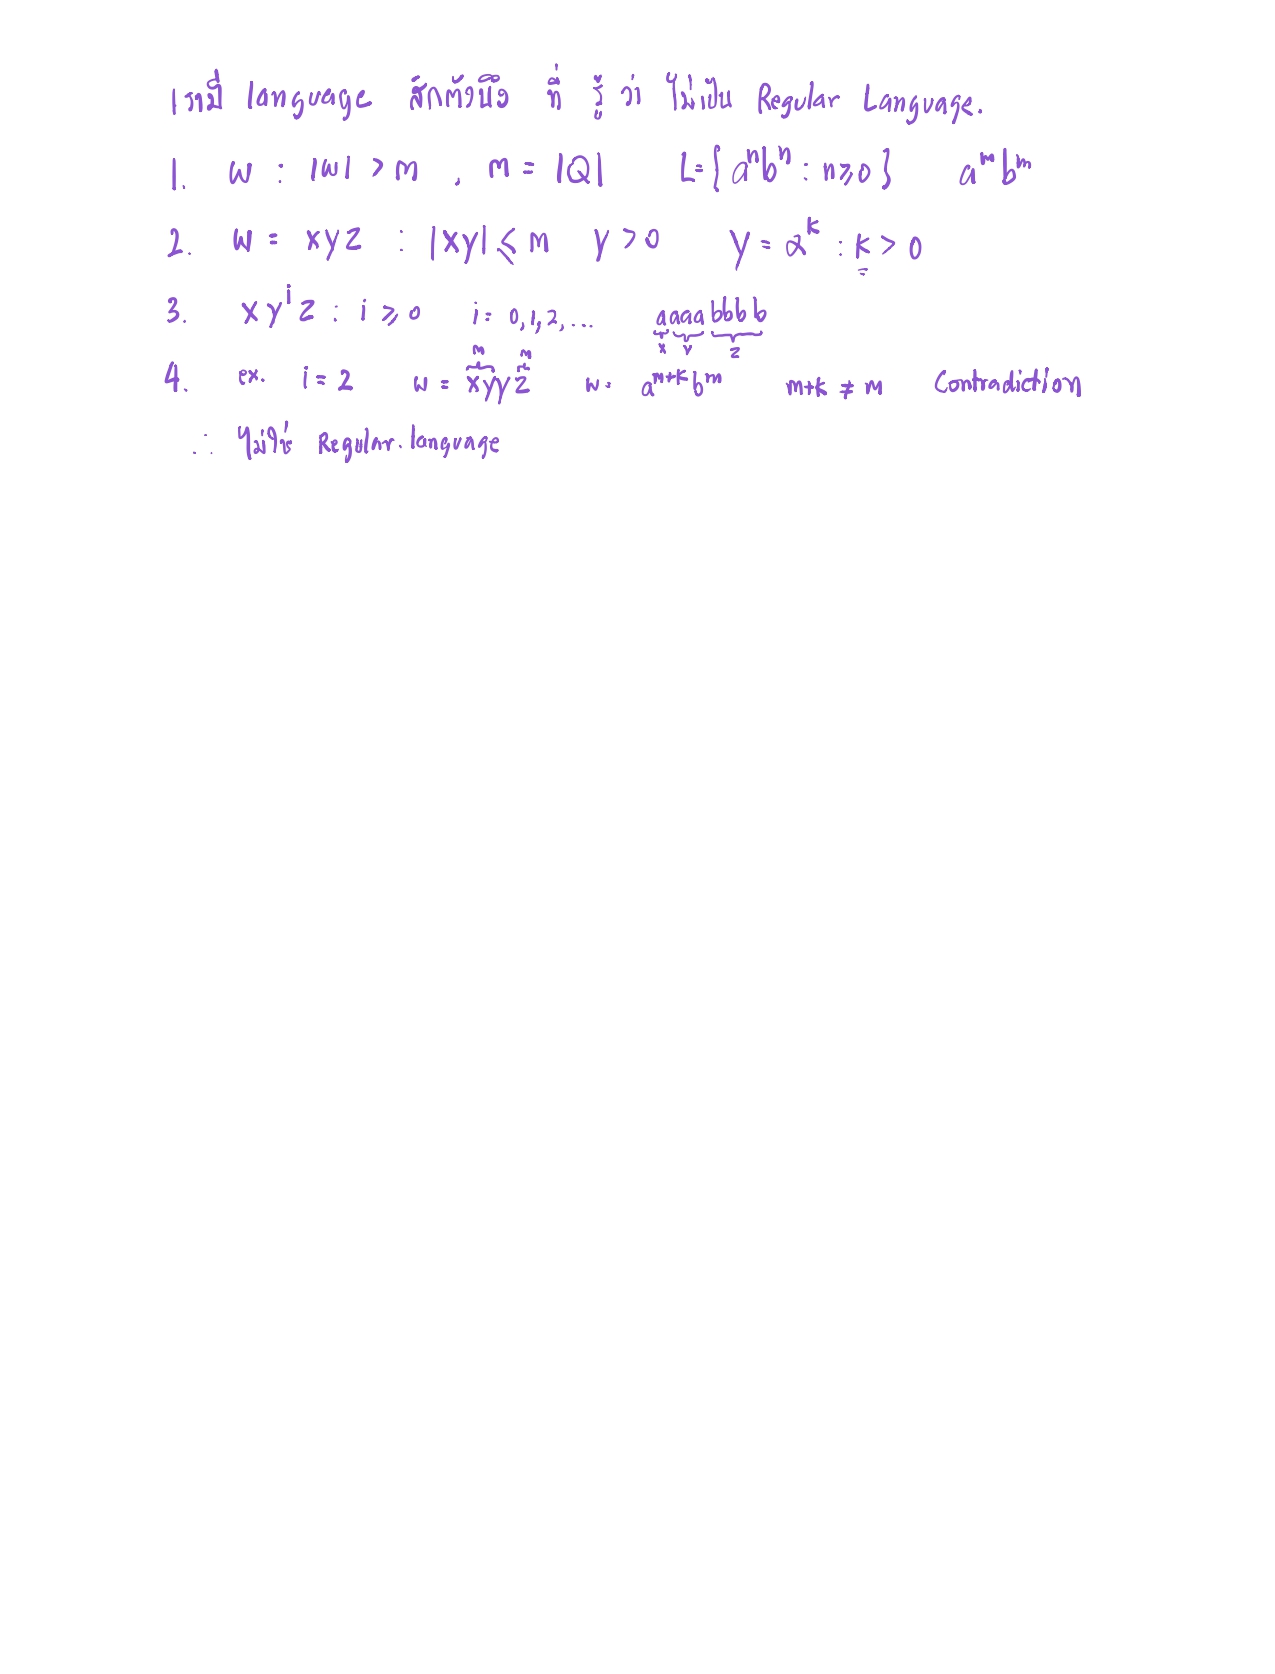 เรามี language สักตัวนึง ที่ รู้ ว่า ไม่เป็น Regular Language.
1. w : |w| > m , m = |Q| L={a^n b^n : n ≥ 0} a^m b^m
2. w = xyz : |xy| ≤ m y > 0 y = a^k : k > 0
3. x y^i z : i ≥ 0 i = 0, 1, 2, ... aaaa bbbb
x y z
m m
4. ex. i = 2 w = xyyz w = a^{m+k} b^m m+k ≠ m Contradiction
∴ ไม่ใช่ Regular. language